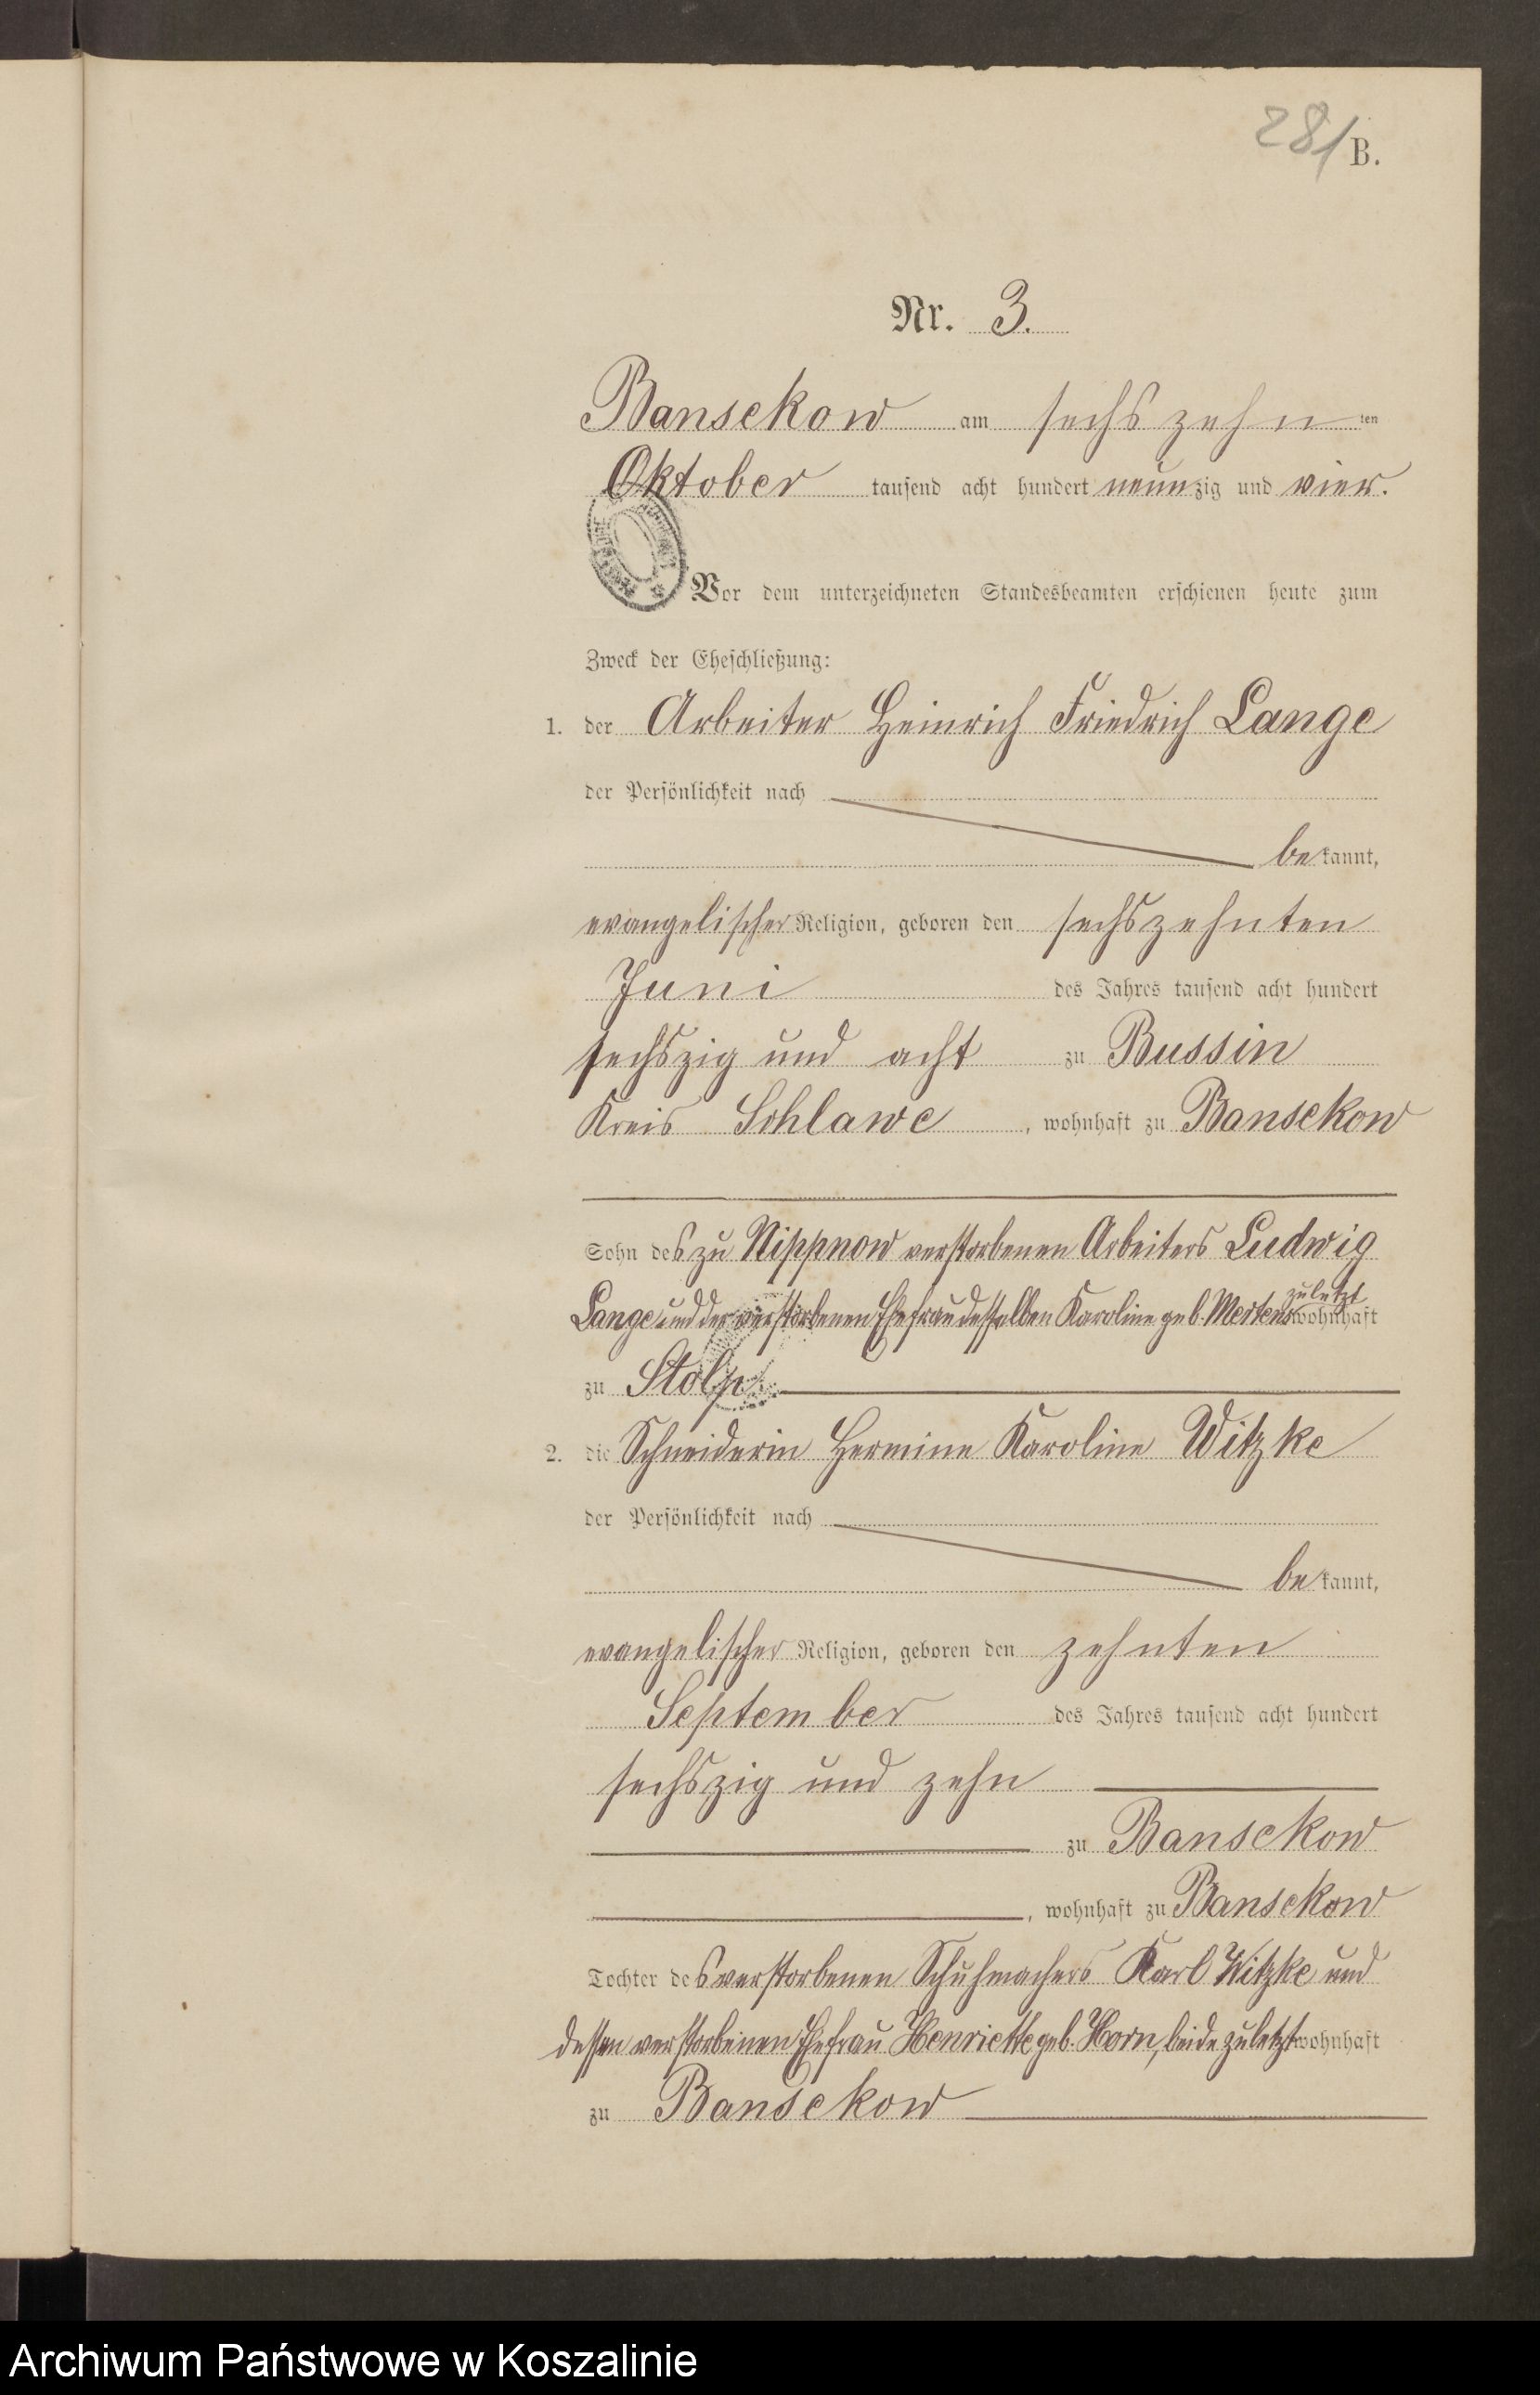 281 B.
Nr. 3.
Bansekow am sechszehn ten
Oktober tausend acht hundert neunzig und vier.
Vor dem unterzeichneten Standesbeamten erschienen heute zum
Zweck der Eheschließung:
1. der Arbeiter Heinrich Friedrich Lange
der Persönlichkeit nach
bekannt,
evangelischer Religion, geboren den sechszehnten
Juni des Jahres tausend acht hundert
sechszig und acht zu Bussin
Kreis Schlawe, wohnhaft zu Bansekow
Sohn des zu Nippnow verstorbenen Arbeiters Ludwig
Lange und der verstorbenen Ehefrau desselben Karoline geb. Mertens zuletzt wohnhaft
zu Stolp.
2. die Schneiderin Hermine Karoline Witzke
der Persönlichkeit nach
bekannt,
evangelischer Religion, geboren den zehnten
September des Jahres tausend acht hundert
sechszig und zehn
zu Bansekow
, wohnhaft zu Bansekow
Tochter des verstorbenen Schuhmachers Karl Witzke und
dessen verstorbenen Ehefrau Henriette geb. Horn, beide zuletzt wohnhaft
zu Bansekow
Archiwum Państwowe w Koszalinie